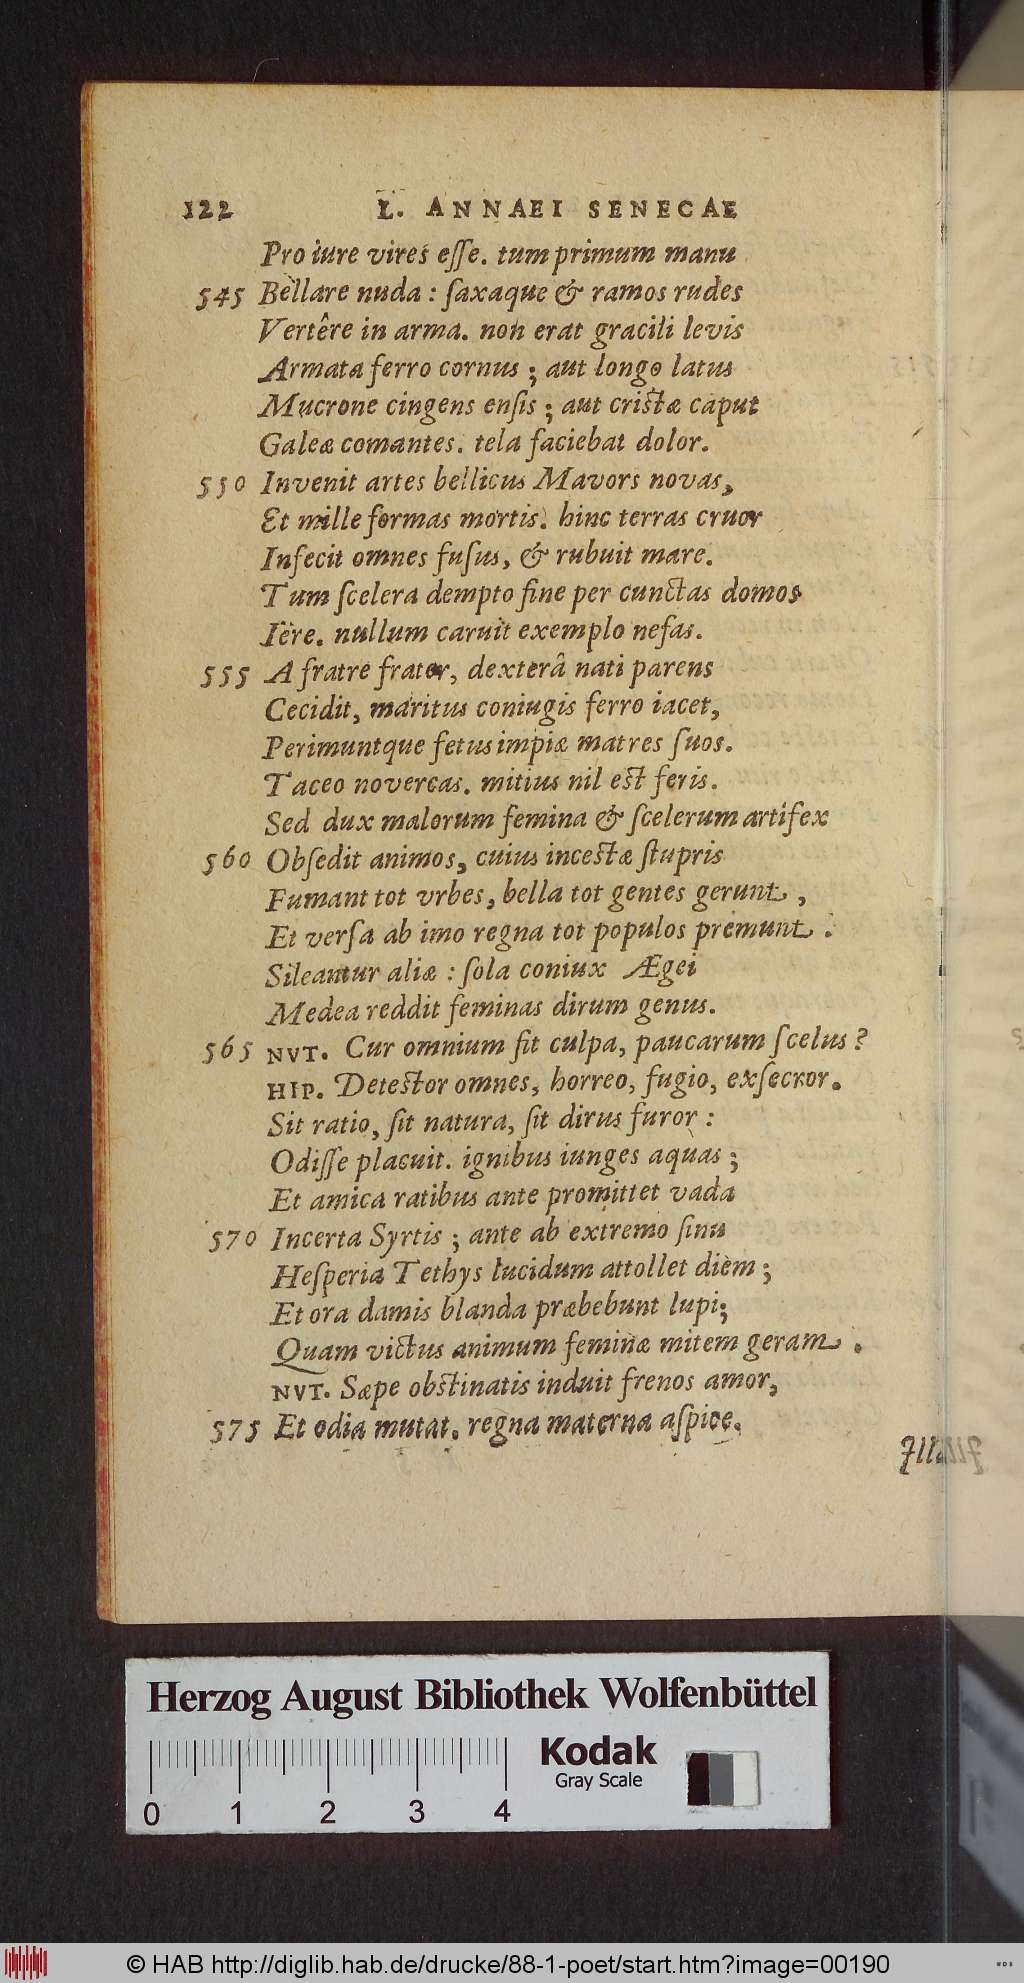 122 L. ANNAEI SENECAE
Pro iure vires eſſe. tum primum manu
545 Bellare nuda : ſaxaque & ramos rudes
Vertêre in arma. non erat gracili levis
Armata ferro cornus ; aut longo latus
Mucrone cingens enſis ; aut criſtæ caput
Galeæ comantes. tela faciebat dolor.
550 Invenit artes bellicus Mavors novas,
Et mille formas mortis. hinc terras cruor
Infecit omnes fuſus, & rubuit mare.
Tum ſcelera dempto fine per cunctas domos
Iêre. nullum caruit exemplo nefas.
555 A fratre frater, dexterâ nati parens
Cecidit, maritus coniugis ferro iacet,
Perimuntque fetus impiæ matres ſuos.
Taceo novercas. mitius nil eſt feris.
Sed dux malorum femina & ſcelerum artifex
560 Obſedit animos, cuius inceſtæ ſtupris
Fumant tot vrbes, bella tot gentes gerunt ,
Et verſa ab imo regna tot populos premunt .
Sileantur aliæ : ſola coniux Ægei
Medea reddit feminas dirum genus.
565 NVT. Cur omnium fit culpa, paucarum ſcelus ?
HIP. Deteſtor omnes, horreo, fugio, exſecror.
Sit ratio, ſit natura, ſit dirus furor :
Odiſſe placuit. ignibus iunges aquas ;
Et amica ratibus ante promittet vada
570 Incerta Syrtis ; ante ab extremo ſinu
Heſperia Tethys lucidum attollet diem ;
Et ora damis blanda præbebunt lupi;
Quam victus animum feminæ mitem geram .
NVT. Sæpe obſtinatis induit frenos amor,
575 Et odia mutat. regna materna aſpice.
Herzog August Bibliothek Wolfenbüttel
Kodak
Gray Scale
0 1 2 3 4
© HAB http://diglib.hab.de/drucke/88-1-poet/start.htm?image=00190